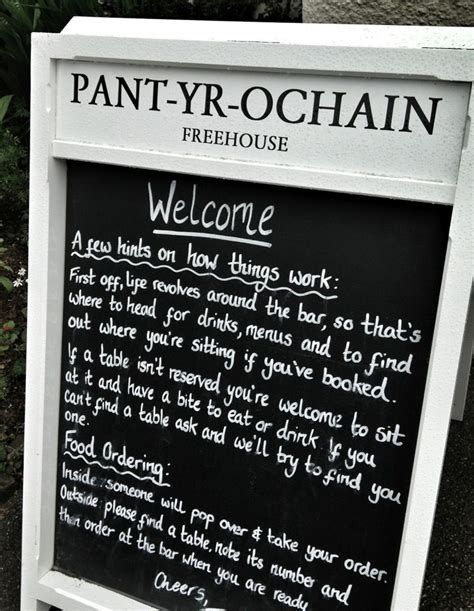 PANT-YR-OCHAIN
FREEHOUSE
Welcome
A few hints on how things work:
First off, life revolves around the bar, so that's
where to head for drinks, menus and to find
out where you're sitting if you've booked.
If a table isn't reserved you're welcome to sit
at it and have a bite to eat or drink. If you
can't find a table ask and we'll try to find you
one.
Food Ordering:
Inside: someone will pop over & take your order.
Outside: please find a table, note its number and
then order at the bar when you are ready
Cheers,